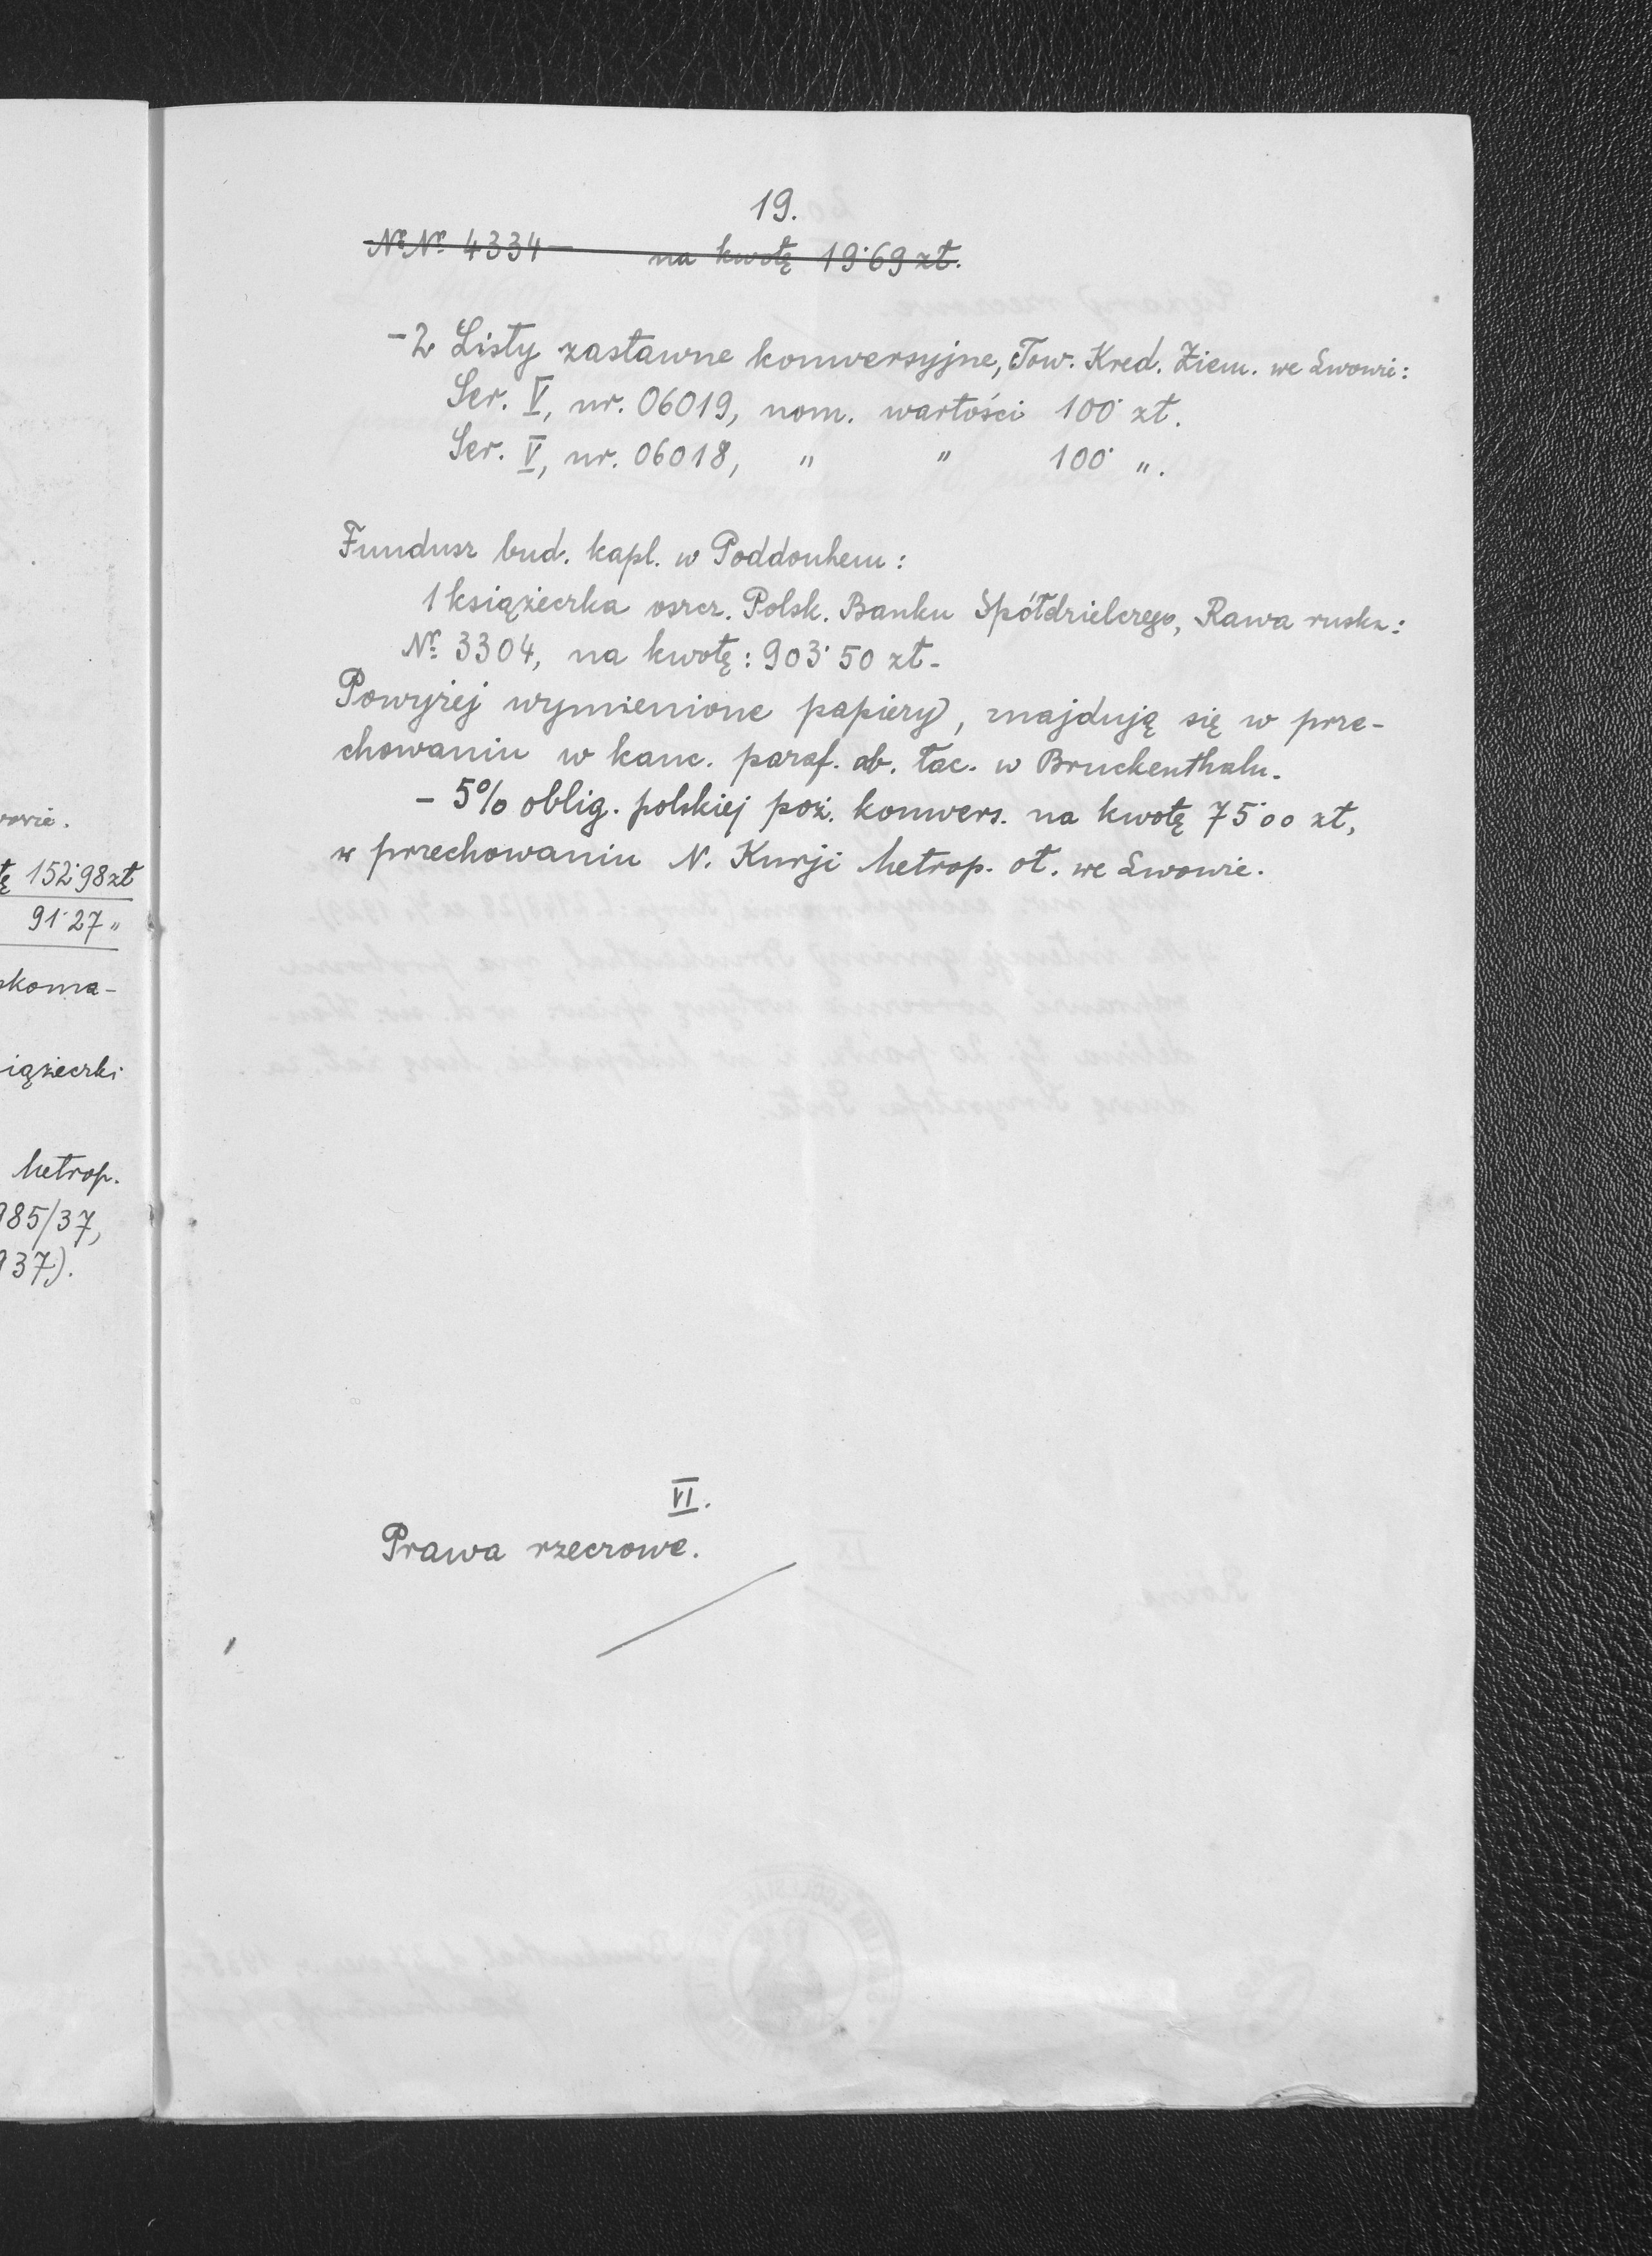 wowie.
tę 152·98 zł
91·27 "
skoma-
iążeczki
Metrop.
985/37,
937).
19.
Nr. Nr. 4334 — na kwotę 19·69 zł.
- 2 Listy zastawne konwersyjne, Tow. Kred. Ziem. we Lwowie:
Ser. V, nr. 06019, nom. wartości 100· zł.
Ser. V, nr. 06018, " " 100· ".
Fundusz bud. kapl. w Poddouhem:
1 książeczka oszcz. Polsk. Banku Spółdzielczego, Rawa ruska:
Nr. 3304, na kwotę: 903·50 zł.
Powyżej wymienione papiery, znajdują się w prze-
chowaniu w kanc. paraf. ob. łac. w Bruckenthalu.
- 5% oblig. polskiej poż. konwers. na kwotę 75·00 zł,
w przechowaniu N. Kurji Metrop. oł. we Lwowie.
VI.
Prawa rzeczowe.